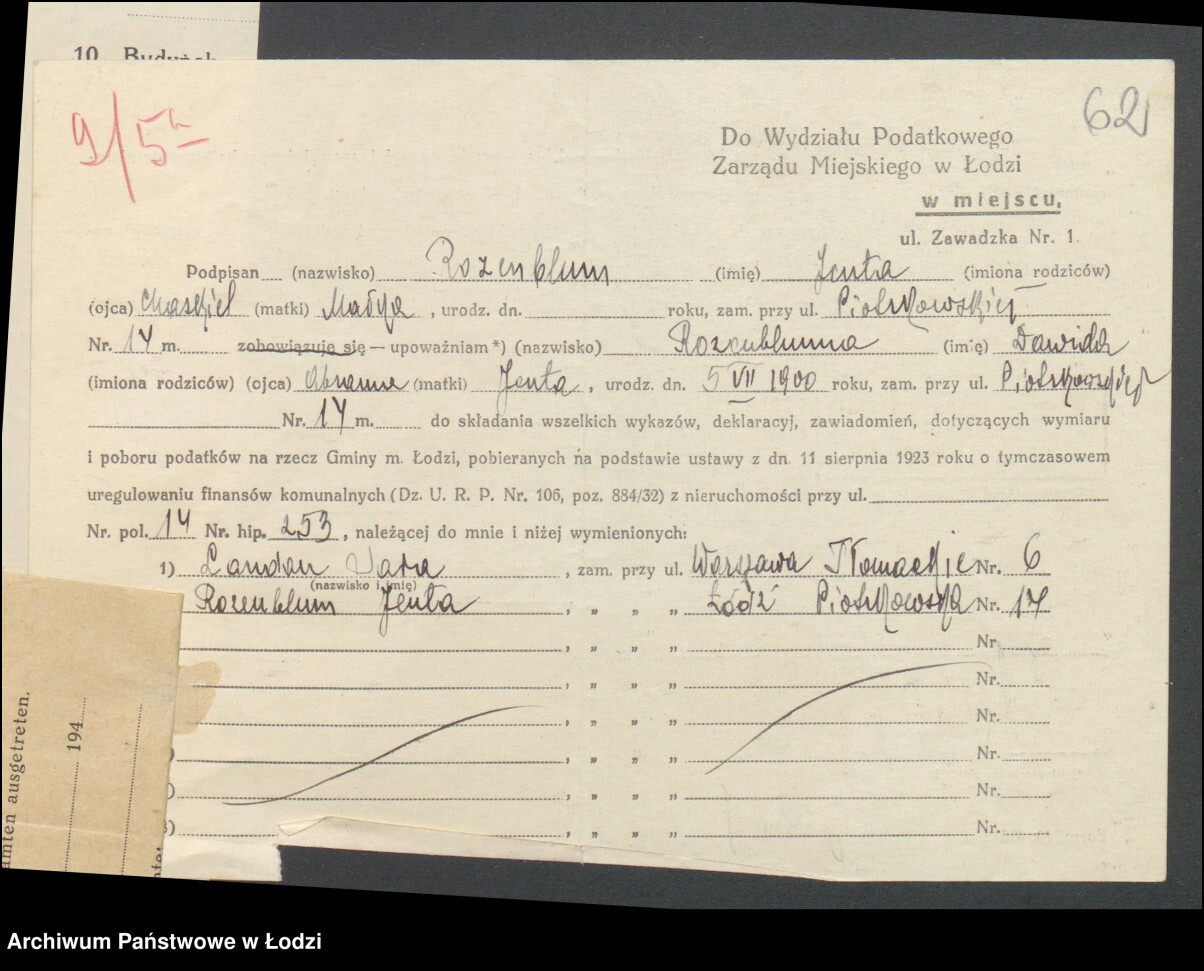 10 Budynek
9/5
62
Do Wydziału Podatkowego
Zarządu Miejskiego w Łodzi
w miejscu,
ul. Zawadzka Nr. 1.
Podpisan (nazwisko) Rozenblum (imię) Jenta (imiona rodziców)
(ojca) Chaskiel (matki) , urodz. dn. roku, zam. przy ul. Piotrkowskiej
Nr. 14 m. zobowiązuję się — upoważniam *) (nazwisko) Rozenbluma (imię) Dawida
(imiona rodziców) (ojca) Abrama (matki) Jenta , urodz. dn. 5 VII 1900 roku, zam. przy ul. Piotrkowskiej
Nr. 14 m. do składania wszelkich wykazów, deklaracyj, zawiadomień, dotyczących wymiaru
i poboru podatków na rzecz Gminy m. Łodzi, pobieranych na podstawie ustawy z dn. 11 sierpnia 1923 roku o tymczasowem
uregulowaniu finansów komunalnych (Dz. U. R. P. Nr. 106, poz. 884/32) z nieruchomości przy ul.
Nr. pol. 14 Nr. hip. 253, należącej do mnie i niżej wymienionych:
1) Landau Sara , zam. przy ul. Warszawa Tłomackie Nr. 6
(nazwisko i imię)
Rozenblum Jenta , „ „ „ Łódź Piotrkowska Nr. 14
, „ „ „ Nr.
, „ „ „ Nr.
, „ „ „ Nr.
) , „ „ „ Nr.
) , „ „ „ Nr.
) , „ „ „ Nr.
amten ausgetreten.
194
Archiwum Państwowe w Łodzi